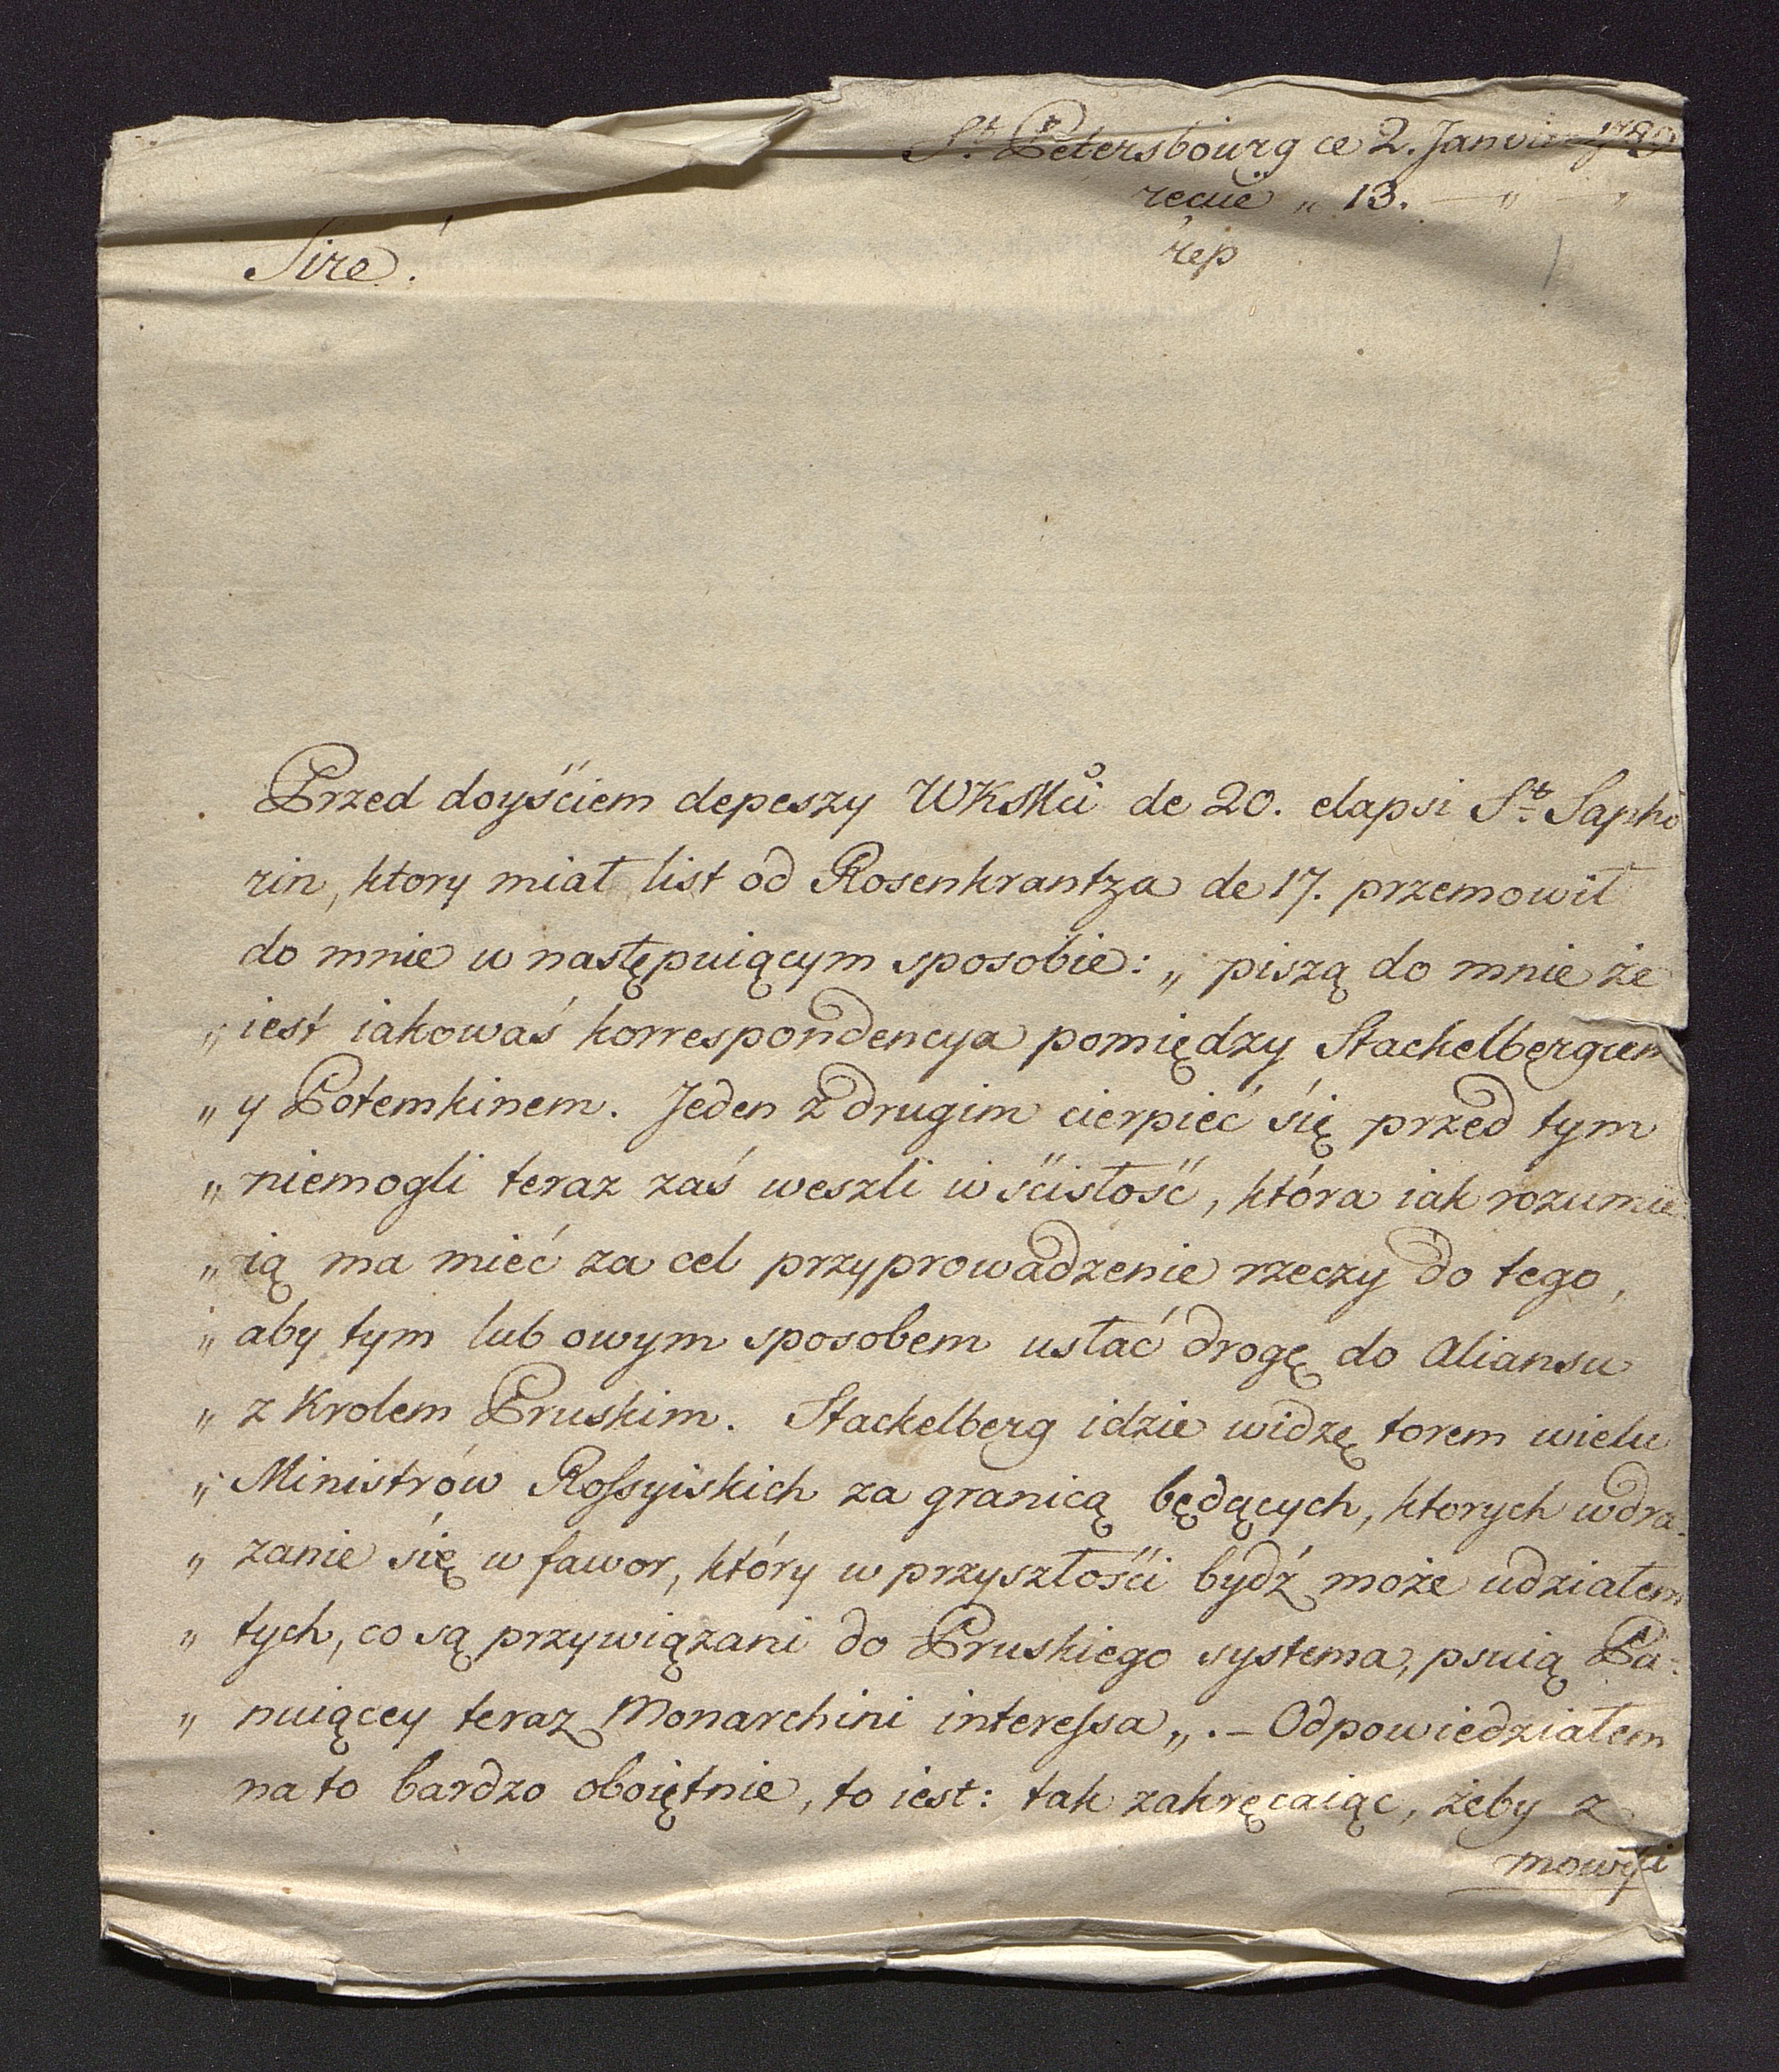 St. Petersbourg ce 2. Janvier 1789
recue „ 13. — „ — „
rep
Sire.
Przed doyściem depeszy WKsMci de 20. elapsi St. Sapho
rin, ktory miał list od Rosenkrantza de 17. przemowił
do mnie w następuiącym sposobie: „ piszą do mnie że
„ iest iakowaś korrespondencya pomiędzy Stackelbergiem
„ y Potemkinem. Jeden z drugim cierpieć się przed tym
„ niemogli teraz zaś weszli w ścisłość, która iak rozumie
„ ią ma mieć za cel przyprowadzenie rzeczy do tego,
„ aby tym lub owym sposobem usłać drogę do Aliansu
„ z Krolem Pruskim. Stackelberg idzie widzę torem wielu
„ Ministrów Rossyiskich za granicą będących, ktorych wdra-
„ zanie się w fawor, który w przyszłości bydź może udziałem
„ tych, co są przywiązani do Pruskiego systema, psuią Pa-
„ nuiącey teraz Monarchini interessa „. – Odpowiedziałem
na to bardzo oboiętnie, to iest: tak zakręcaiąc, żeby z